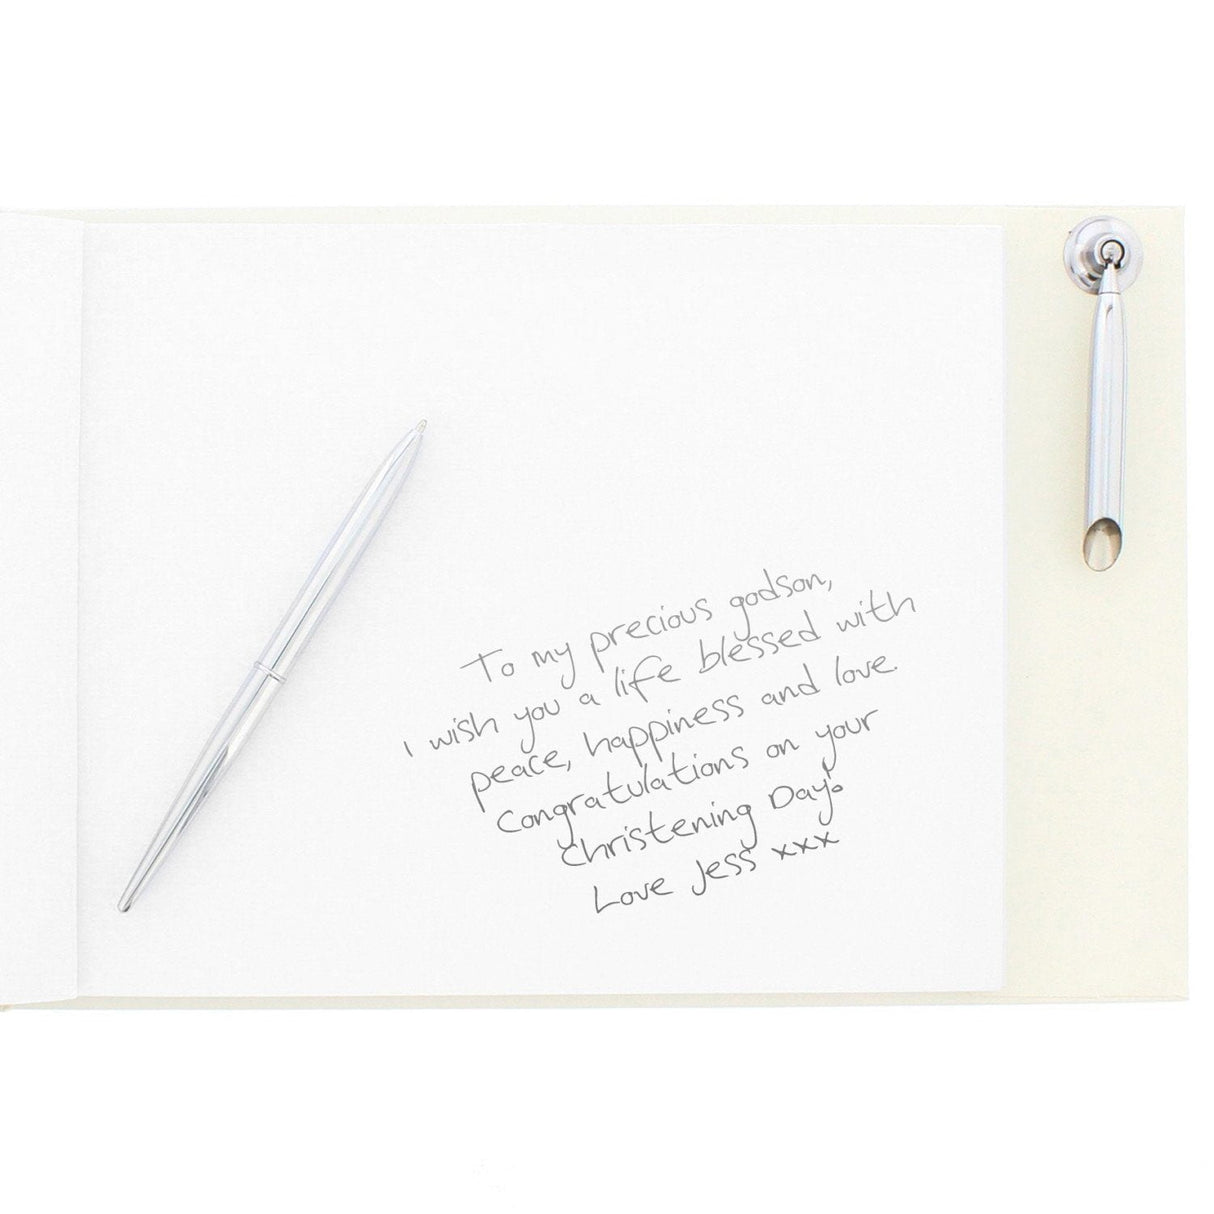 To my precious godson,
I wish you a life blessed with
peace, happiness and love.
Congratulations on your
christening Day!
Love Jess xxx